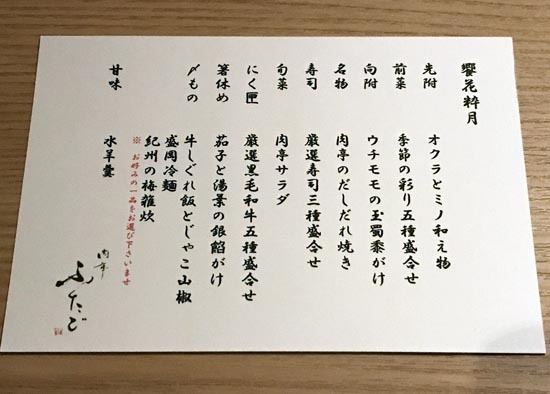 饗花粋月
先附 オクラとミノ和え物
前菜 季節の彩り五種盛合せ
向附 ウチモモの玉蜀黍がけ
名物 肉亭のだしだれ焼き
寿司 厳選寿司三種盛合せ
旬菜 肉亭サラダ
にく匣 厳選黒毛和牛五種盛合せ
箸休め 茄子と湯葉の銀餡がけ
〆もの 牛しぐれ飯とじゃこ山椒
盛岡冷麺
紀州の梅雑炊
※ お好みの一品をお選び下さいませ
甘味 水羊羹
肉亭
ふたご